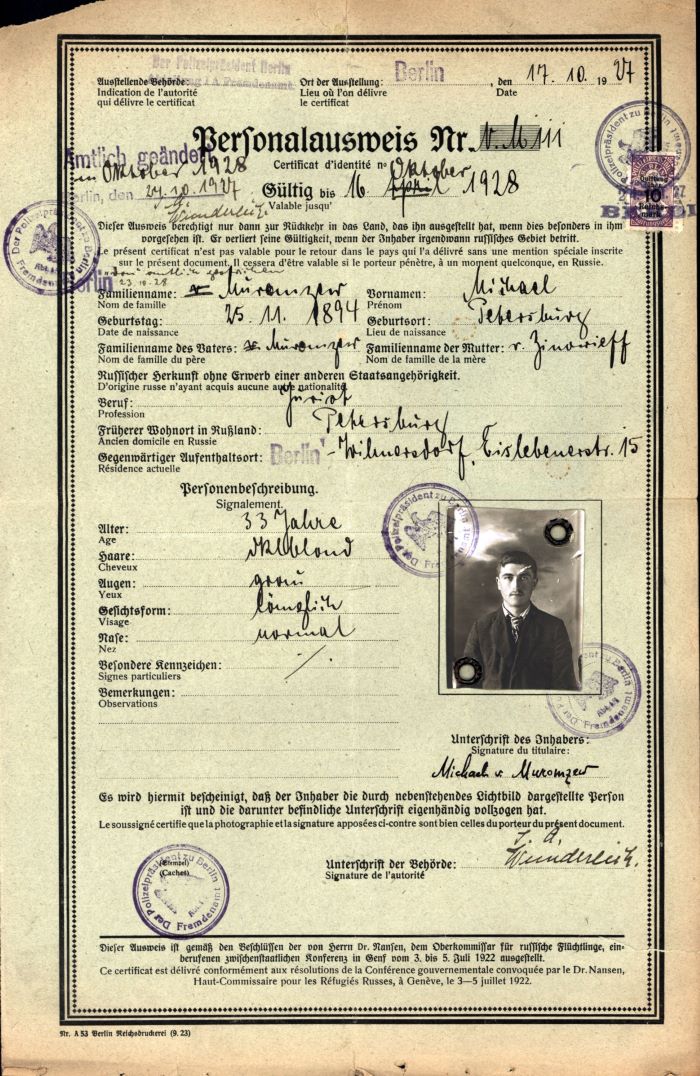 Der Polizeipräsident Berlin
Abteilung I A Fremdenamt
Ausstellende Behörde:
Indication de l'autorité
qui délivre le certificat
Ort der Ausstellung: Berlin, den 17. 10. 1927
Lieu où l'on délivre
le certificat
Date
Personalausweis Nr.
Certificat d'identité no
Amtlich geändert
in Oktober 1928
Berlin, den 27.10.1927
J. A.
Wunderlich.
Gültig bis 16 April Oktober 1928
Valable jusqu'
Dieser Ausweis berechtigt nur dann zur Rückkehr in das Land, das ihn ausgestellt hat, wenn dies besonders in ihm
vorgesehen ist. Er verliert seine Gültigkeit, wenn der Inhaber irgendwann russisches Gebiet betritt.
Le présent certificat n'est pas valable pour le retour dans le pays qui l'a délivré sans une mention spéciale inscrite
sur le présent document. Il cessera d'être valable si le porteur pénètre, à un moment quelconque, en Russie.
"von" amtlich gestrichen
Berlin 23.10.28
Familienname: v. Muromzew
Nom de famille
Vornamen: Michael
Prénom
Geburtstag: 25. 11. 1894
Date de naissance
Geburtsort: Petersburg
Lieu de naissance
Familienname des Vaters: v. Muromzew
Nom de famille du père
Familienname der Mutter: v. Zinowieff
Nom de famille de la mère
Russischer Herkunft ohne Erwerb einer anderen Staatsangehörigkeit.
D'origine russe n'ayant acquis aucune autre nationalité.
Beruf: Jurist
Profession
Früherer Wohnort in Rußland: Petersburg
Ancien domicile en Russie
Gegenwärtiger Aufenthaltsort: Berlin-Wilmersdorf, Eislebenerstr. 15
Résidence actuelle
Personenbeschreibung.
Signalement.
Alter: 33 Jahre
Age
Haare: dklblond
Cheveux
Augen: grau
Yeux
Gesichtsform: länglich
Visage
Nase: normal
Nez
Besondere Kennzeichen: /
Signes particuliers
Bemerkungen:
Observations
Der Polizeipräsident zu Berlin
Fremdenamt
Unterschrift des Inhabers:
Signature du titulaire:
Michael v. Muromzew
Es wird hiermit bescheinigt, daß der Inhaber die durch nebenstehendes Lichtbild dargestellte Person
ist und die darunter befindliche Unterschrift eigenhändig vollzogen hat.
Le soussigné certifie que la photographie et la signature apposées ci-contre sont bien celles du porteur du présent document.
J. A.
(Stempel)
(Cachet)
Der Polizeipräsident zu Berlin
Fremdenamt
Unterschrift der Behörde: Wunderlich.
Signature de l'autorité
Dieser Ausweis ist gemäß den Beschlüssen der von Herrn Dr. Nansen, dem Oberkommissar für russische Flüchtlinge, ein-
berufenen zwischenstaatlichen Konferenz in Genf vom 3. bis 5. Juli 1922 ausgestellt.
Ce certificat est délivré conformément aux résolutions de la Conférence gouvernementale convoquée par le Dr. Nansen,
Haut-Commissaire pour les Réfugiés Russes, à Genève, le 3—5 juillet 1922.
Nr. A 53 Berlin Reichsdruckerei (9. 23)